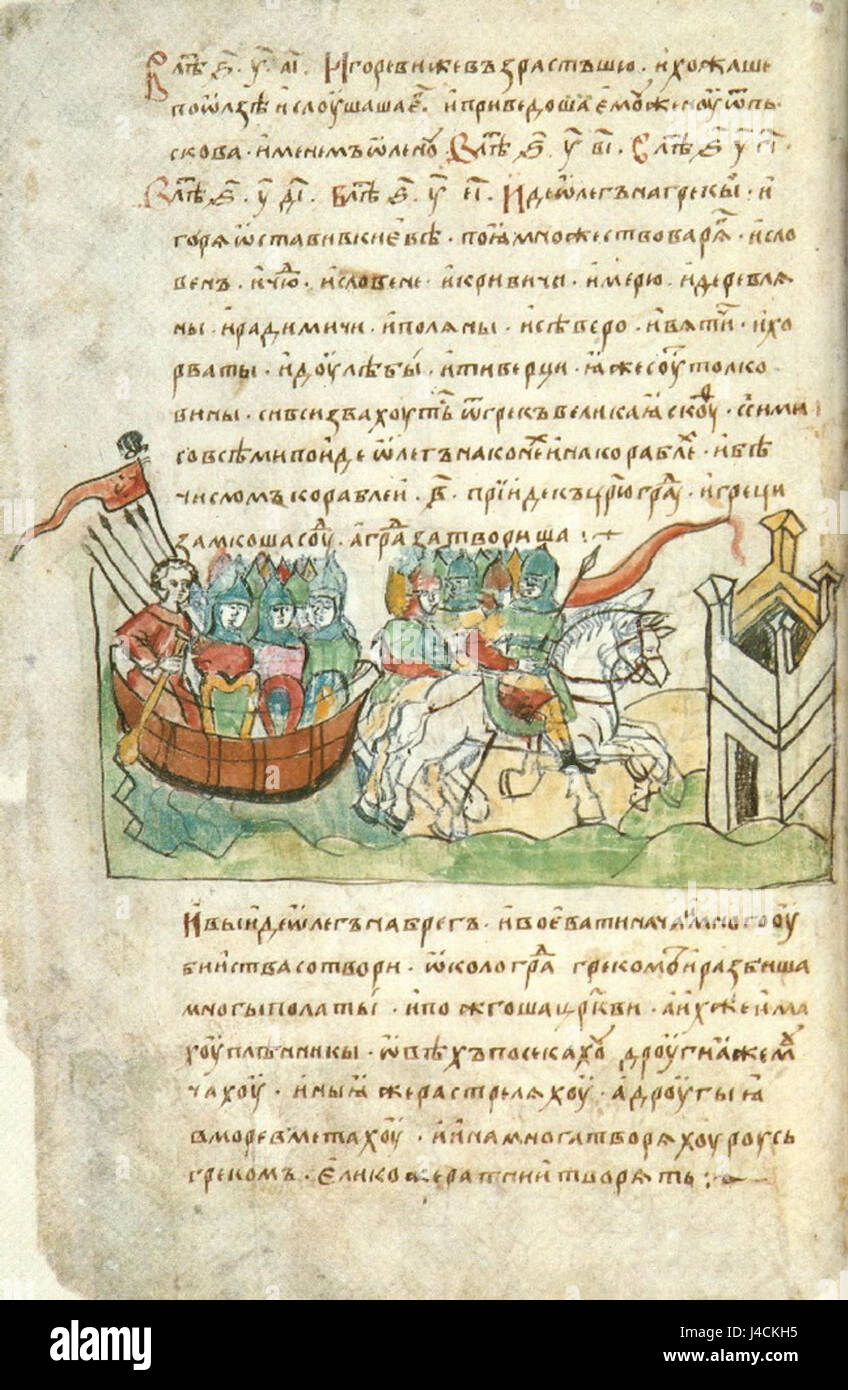 В лѣⷮ ҂ѕ҃ · у҃ · а҃і · Игореви же възрастъшю · и хожаше
по ѡлзѣ и слоушаше еⷢ · и приведоша емоу женоу ѿ пь
скова · именемъ ѡленоу В лѣⷮ ҂ѕ҃ · у҃ в҃і · В лѣⷮ ҂ѕ҃ у҃ г҃і ·
В лѣⷮ ҂ѕ҃ · у҃ д҃і · В лѣⷮ ҂ѕ҃ · у҃ е҃і · Иде ѡлегъ на грекы · и
горя ѡставив киевѣ · поꙗ множество варѧⷢ · и сло
венъ · и чюⷣ · и словене · и кривичи · и мерю · и деревлѧ
ны · и радимичи · и полѧны · и сѣверо · и вѧтиⷱ · и хо
рваты · и доулѣбы · и тиверци · ꙗже соуⷮ толко
вины · си вси звахоуть ѿ грекъ великаꙗ скоуⷴ · с сими
со всѣми поиде ѡлегъ на конеⷯ и на кораблеⷯ · и бѣ
числомъ кораблеи · в҃ · прїиде къ црⷭ҇ю граⷣ · и греци
замкоша соуⷣ · а граⷣ затвориша :
И выиде ѡлегъ на брегъ · и воевати нача · и много оу
биства сотвори · ѡколо граⷣ грекомъ · и разбиша
многы полаты · и пожгоша црⷭ҇кви · а их же има
хоу плѣнникы · ѡвѣхъ посекахоу дроугиꙗ же моу
чахоу · иныꙗ же растрелѧхоу · а дроугыꙗ
в море вметахоу · и ина многа творѧхоу роусь
грекомъ · елико же ратнии творѧть :
alamy
Image ID: J4CKH5
www.alamy.com